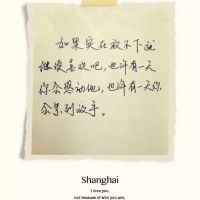 如果实在放不下就
继续喜欢吧，也许有一天
你会感动他，也许有一天你
会累到放手。
Shanghai
I love you
not because of who you are,